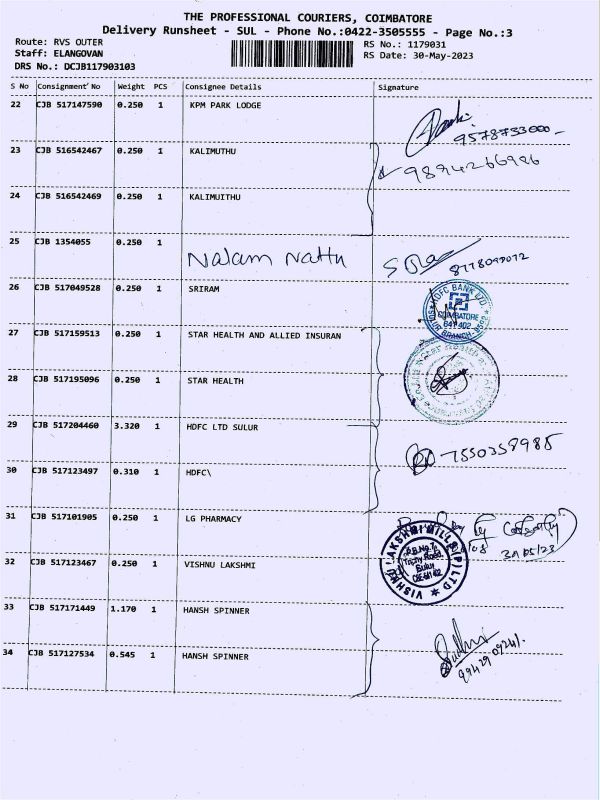 THE PROFESSIONAL COURIERS, COIMBATORE
Delivery Runsheet - SUL - Phone No.:0422-3505555 - Page No.:3
Route: RVS OUTER RS No.: 1179031
Staff: ELANGOVAN RS Date: 30-May-2023
DRS No.: DCJB117903103
S No Consignment No Weight PCS Consignee Details Signature
22 CJB 517147590 0.250 1 KPM PARK LODGE
9578733000
23 CJB 516542467 0.250 1 KALIMUTHU
24 CJB 516542469 0.250 1 KALIMUITHU
25 CJB 1354055 0.250 1
Nalam Nattu
26 CJB 517049528 0.250 1 SRIRAM
HDFC BANK LTD.
COIMBATORE
641 402
BRANCH
27 CJB 517159513 0.250 1 STAR HEALTH AND ALLIED INSURAN
28 CJB 517195096 0.250 1 STAR HEALTH
29 CJB 517204460 3.320 1 HDFC LTD SULUR
7550358985
30 CJB 517123497 0.310 1 HDFC\
31 CJB 517101905 0.250 1 LG PHARMACY
32 CJB 517123467 0.250 1 VISHNU LAKSHMI
VISHNU LAKSHMI MILLS (P) LTD
P.B.No.
Trichy Road
Sulur
33 CJB 517171449 1.170 1 HANSH SPINNER
34 CJB 517127534 0.545 1 HANSH SPINNER
99429 09241